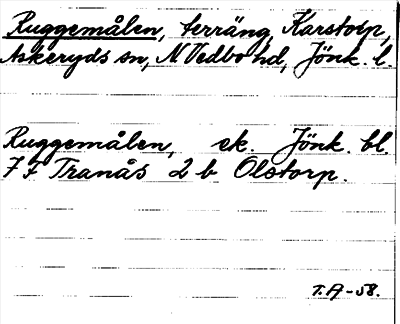 Ruggemålen, terräng, Karstorp,
Askeryds sn, N Vedbo hd, Jönk. l.
Ruggemålen, ek. Jönk. bl.
7 F Tranås 2 b Olstorp.
T.A-58.